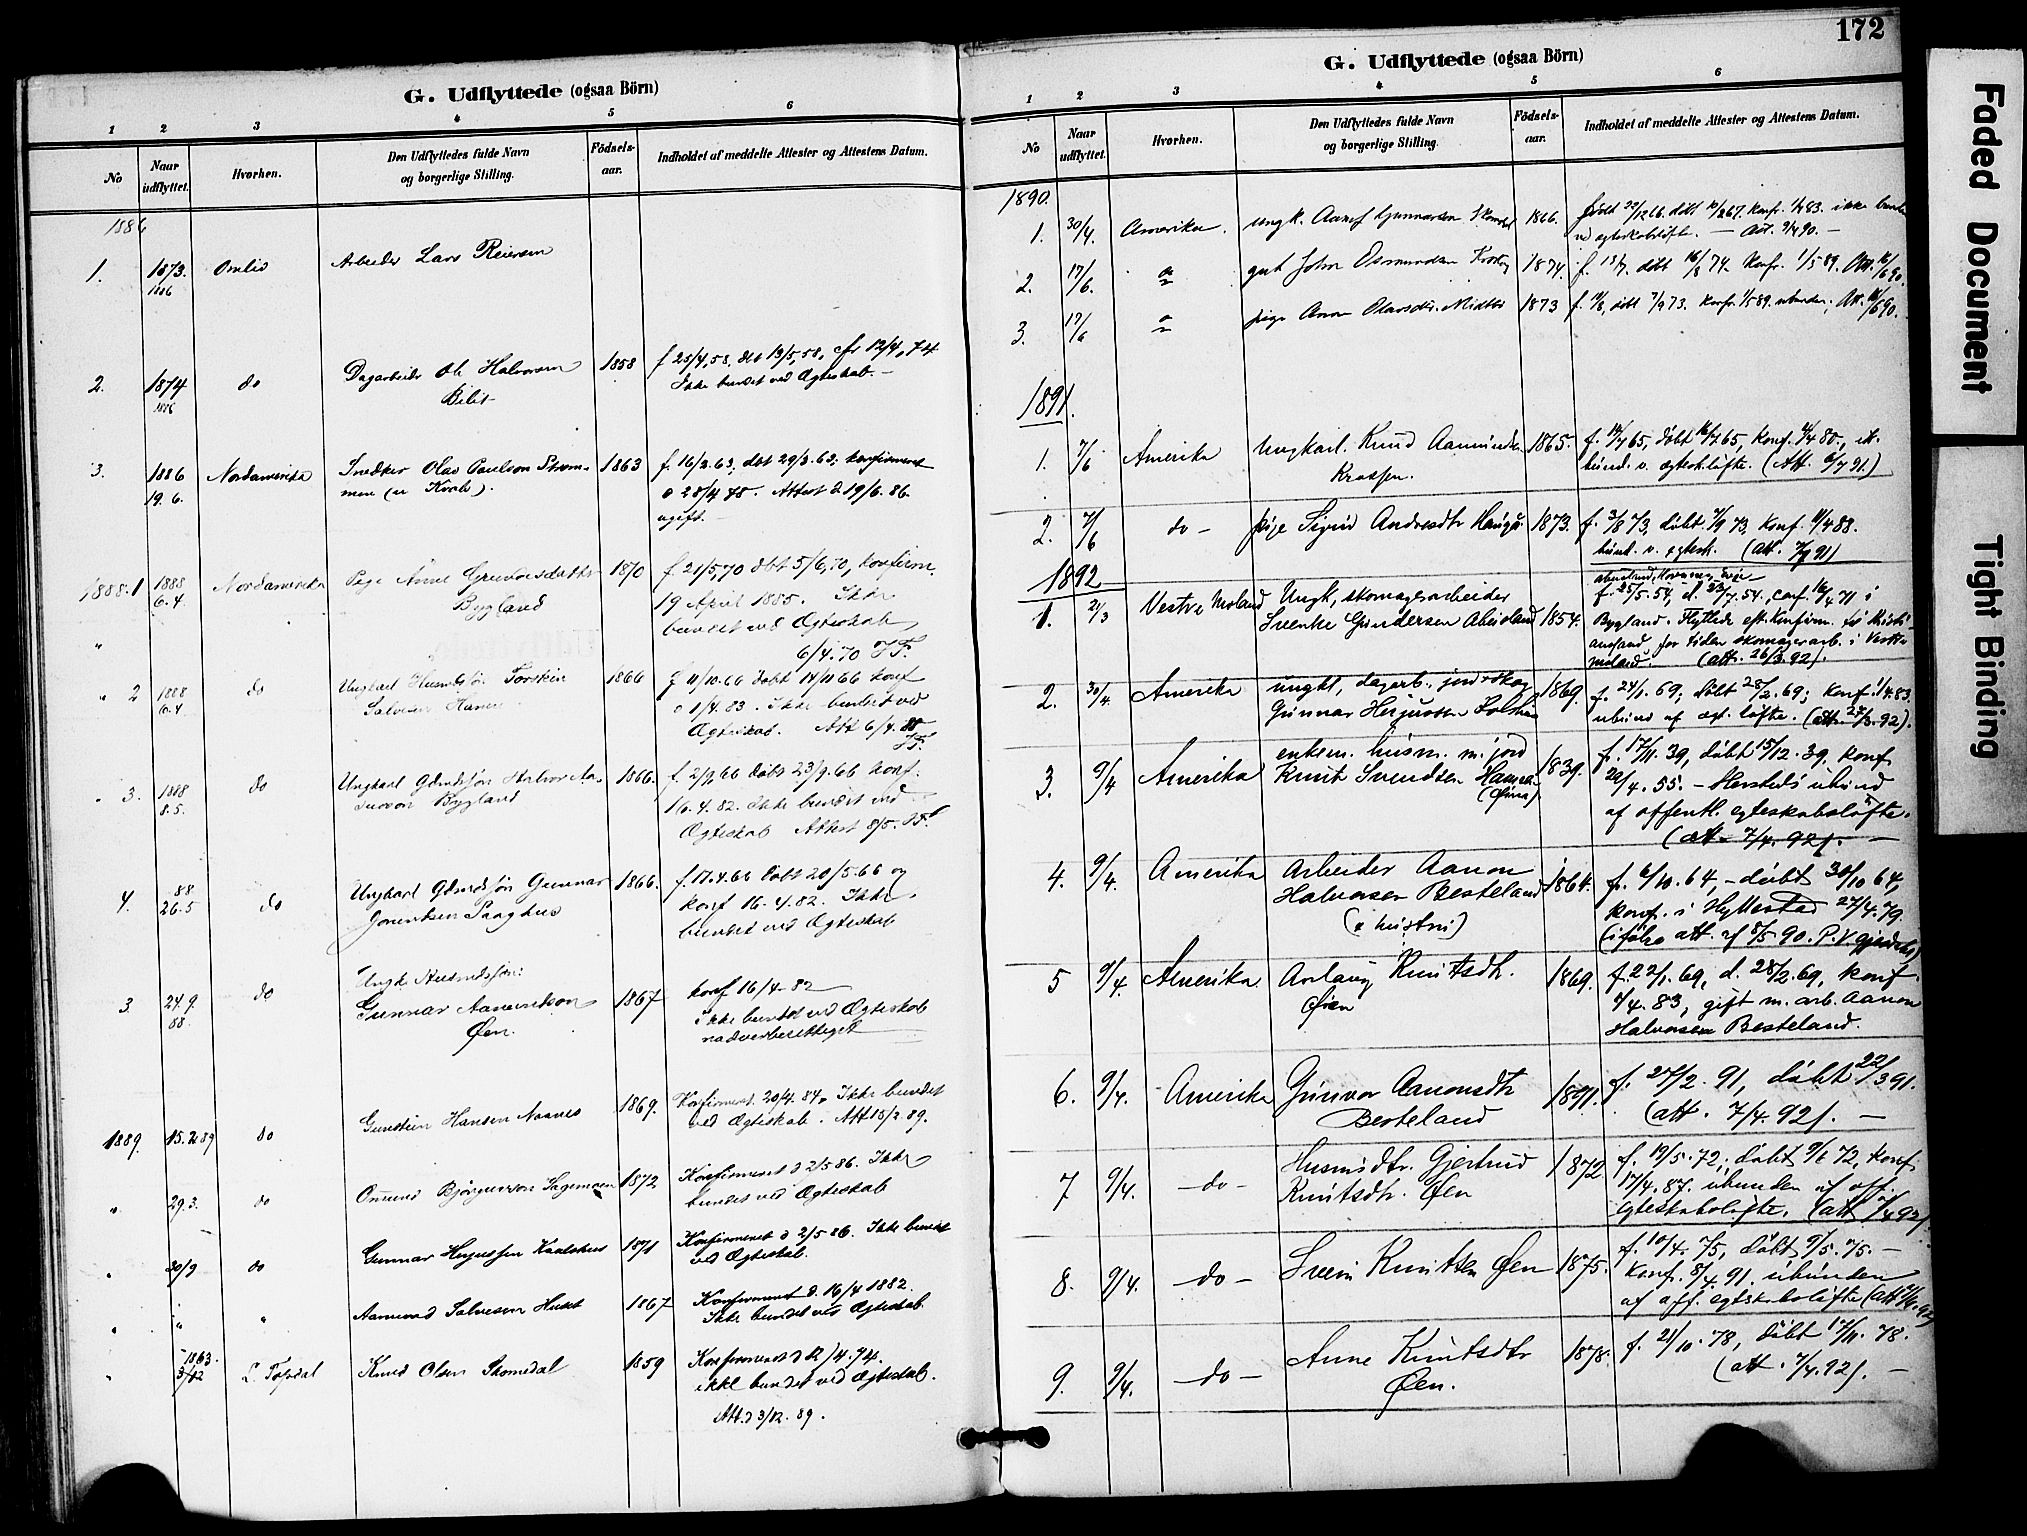 G. Udflyttede (ogsaa Börn)
1 2 3 4 5 6
No
Naar udflyttet.
Hvorhen.
Den Udflyttedes fulde Navn og borgerlige Stilling.
Födsels-aar.
Indholdet af meddelte Attester og Attestens Datum.
1886
1. 1873. Omlid Arbeider Lars Reiersen
1886
2. 1874 do Dagarbeider Ole Halvorsen 1858 f 25/4,58, døbt 13/5,58, cfr 12/4,74
1886 Ikke bundet ved Ægteskab.-
3. 1886 Nordamerika Snedker Olav Paulson Strøm- 1863 f. 16/2.63, døbt 29/3.63, konfirmeret
19. 6. men (
d 28/4 78. Attest d. 19/6. 86.
ugift.-
1888.1 1888 Nordamerika Pige Anne Gunvorsdatter 1870 f. 21/5,70 døbt 5/6,70, konfirm.
6.4. Bygland 19 April 1885. Ikke
bundet ved Ægteskab
"
6/4.70
" 2 1888 do Ungkarl Husmdsøn Torstein 1866 f 11/10.66 døbt 14/11 66 konf
6.4 Salvesen d 1/4.83. Ikke bundet ved
Ægteskab. Att 6/4.88
" 3. 1888 do Ungkarl Gdmdsøn 1866. f. 2/9 66 døbt 23/9.66 konf.
8.5. Bygland 16.4.82. Ikke bundet ved
Ægteskab Attest 8/5.
4. 88 do Ungkarl Gdmdsøn Gunnar 1866. f. 17.4.66 døbt 20/5.66 og
26.5 konf 16.4.82. Ikke
bundet ved Ægteskab
3. 24.9 do Ungk Husmdsøn:
88. Gunnar 1867 konf 16/4-82
Øen. ikke bundet ved Ægteskab
nadverberettiget
1889. 15.2.89 do Gunstein Hansen 1869. Konfirmeret 20/4.84. Ikke bundet
ved Ægteskab. Att 15/2 89.
" 29.3. do Omund Bjørguvson Sagemoen 1872 Konfirmeret d 2/5 86. Ikke
bundet ved Ægteskab
" 30/9 do Gunnar 1871 Konfirmeret d 2/5 86. Ikke bundet
ved Ægteskab.
" " " Salvesen Huset 1867 Konfirmeret d. 16/4 1882.
Ikke bundet ved Ægteskab
" 1863. Topdal Knud Olsen 1859 Konfirmeret d 12/4.74.
3/12 ikke bundet ved Ægteskab.
Att. d 3/12. 89.
172
G. Udflyttede (ogsaa Börn)
1 2 3 4 5 6
No
Naar udflyttet.
Hvorhen.
Den Udflyttedes fulde Navn og borgerlige Stilling.
Födsels-aar.
Indholdet af meddelte Attester og Attestens Datum.
1890.
1. 30/4. Amerika. ungk. Gunnarsen 1866. født 22/12 66. døbt 10/2 67. konf. 1/4 83. ikke bunden
ved egteskabsløfte. - Att. 9/4 90. -
2. 17/6. gut John 1874. f. 13/7. døbt 16/8 74. konf. 1/5 89. Att. 16/6 90.
3. 17/6 pige Anne Olavsdtr. 1873 f. døbt 7/9 73. konf. 1/5 89. ubunden; Att. 16/6 90.
1891.
1. 7/6 Amerika Ungkarl. Knud Aamundsen 1865. f. 14/7 65, døbt 16/7 65, konf. 4/4 80, ik.
bund. v. egtesk.løfte. (Att. 6/7 91.)
2. 7/6 do - pige Sigrid Andresdtr 1873. f. 3/8 73, døbt. 7/9 73. Konf. 11/4 88.
bund. v. egtesk. (att. 7/7 91)
1892
1. 21/3 Vestre Moland Ungk, skomagerarbeider f. 25/5.54, d. 23/7.54, conf. 16/4 71 i
Svenke Gundersen 1854. Bygland. Flyttede eft. Konfirm. til Kristi-
ansand for tiden skomagerarb. i Vestre
Moland. (att. 26/3.92).
2. 30/4. Amerika ungkl, dagarb., 1869. f. 24/1.69; døbt 28/2.69; konf. 1/4 83.
Gunnar ubund af egt. løfte. (att. 27/3.92).
3. 9/4 Amerika enkem. husm. m. jord f. 17/11.39, døbt 15/12.39, konf
Knut Svendsen 1839. 29/4.55. - Henstedes ubund
(Øina). af offentl. egteskabsløfte.
(att. 7/4.92). -
4. 9/4. Amerika Arbeider Aanon 1864. f. 6/10.64, - døbt 30/10 64,
Halvorsen Besteland konf. i Hyllestad 27/4.79.
(i hustru) (ifølge att. af 8/5 90.
5 9/4. Amerika Aslaug Knutsdtr. 1869. f. 22/1.69, d. 28/2.69, konf
Øien 1/4.83, gift m. arb. Aanon
Halvorsen Besteland.
6. 9/4. Amerika Gunvor Aanonsdtr 1891. f. 27/2.91, døbt 22/3 91.
Besteland (att. 7/4.92). -
7 9/4. -do- Husmdtr. Gjertrud 1872. f. 19/5.72; døbt 9/6 72, konf.
Knutsdtr. Øen 17/4.87. ubunden af off.
egteskabsløfte. (att 7/4 92).
8. 9/4. -do- Svein Knutsen Øen 1875. f. 10/4.75, døbt 9/5.75. -
konf. 8/4 91. ubunden
af off. egteskabsløfte (att 7/4.92)
9. 9/4. -do- Anne Knutsdtr 1878. f. 21/10.78, døbt 17/11.78.
Øen. (att. 7/4.92). -
Faded Document
Tight Binding